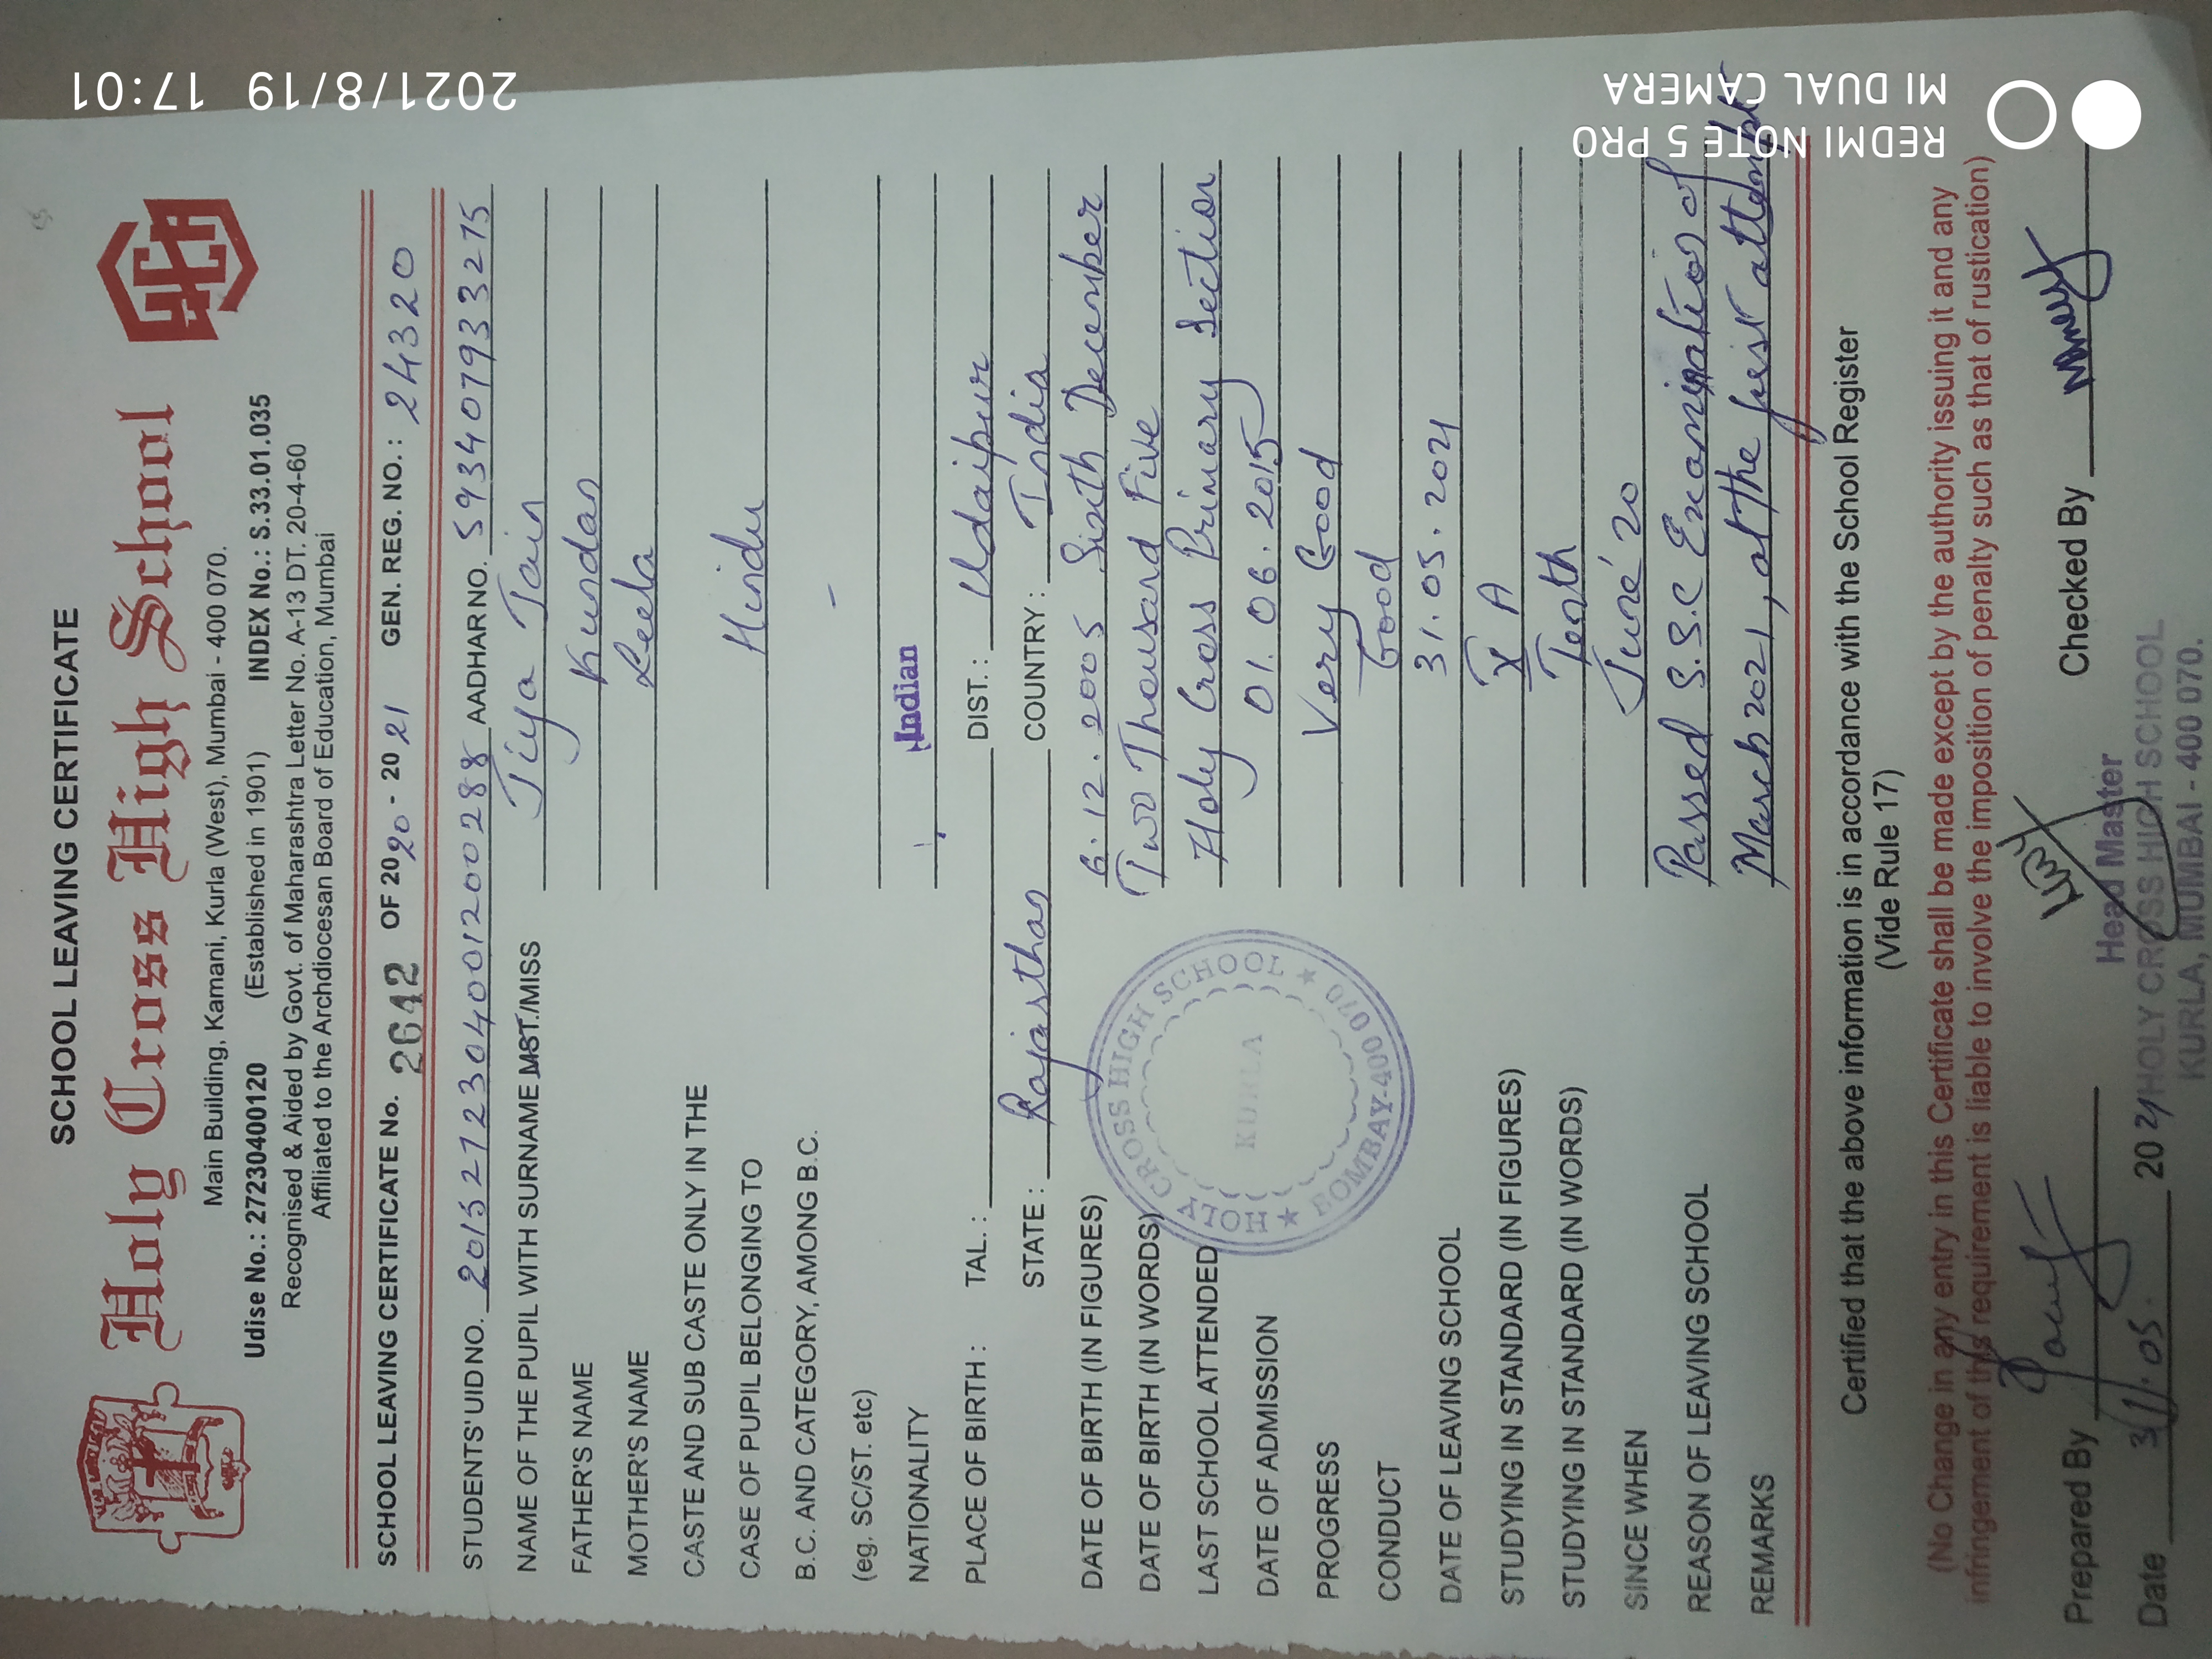 SCHOOL LEAVING CERTIFICATE
Holy Cross High School
Main Building, Kamani, Kurla (West), Mumbai - 400 070.
Udise No.: 27230400120 (Established in 1901) INDEX No.: S.33.01.035
Recognised & Aided by Govt. of Maharashtra Letter No. A-13 DT. 20-4-60
Affiliated to the Archdiocesan Board of Education, Mumbai
SCHOOL LEAVING CERTIFICATE No. 2642 OF 2020 - 2021 GEN. REG. NO. : 24320
STUDENTS' UID NO. 2015272304001200288 AADHAR NO. 593407933275
NAME OF THE PUPIL WITH SURNAME MST./MISS Jiya Jain
FATHER'S NAME Kundan
MOTHER'S NAME Leela
CASTE AND SUB CASTE ONLY IN THE
CASE OF PUPIL BELONGING TO Hindu
B.C. AND CATEGORY, AMONG B.C. -
(eg. SC/ST. etc)
NATIONALITY Indian
PLACE OF BIRTH : TAL. : DIST. : Udaipur
STATE : Rajasthan COUNTRY : India
DATE OF BIRTH (IN FIGURES) 6.12.2005 Sixth December
DATE OF BIRTH (IN WORDS) Two Thousand Five
LAST SCHOOL ATTENDED Holy Cross Primary Section
DATE OF ADMISSION 01.06.2015
PROGRESS Very Good
CONDUCT Good
DATE OF LEAVING SCHOOL 31.05.2021
STUDYING IN STANDARD (IN FIGURES) X A
STUDYING IN STANDARD (IN WORDS) Tenth
SINCE WHEN June'20
REASON OF LEAVING SCHOOL Passed S.S.C Examination of
REMARKS March 2021, at the first attempt
HOLY CROSS HIGH SCHOOL ★ BOMBAY-400 070 ★
KURLA
Certified that the above information is in accordance with the School Register
(Vide Rule 17)
(No Change in any entry in this Certificate shall be made except by the authority issuing it and any
infringement of this requirement is liable to involve the imposition of penalty such as that of rustication)
Prepared By Checked By
Date 31.05. 2021
Head Master
HOLY CROSS HIGH SCHOOL
KURLA, MUMBAI - 400 070.
REDMI NOTE 5 PRO
MI DUAL CAMERA
2021/8/19 17:01